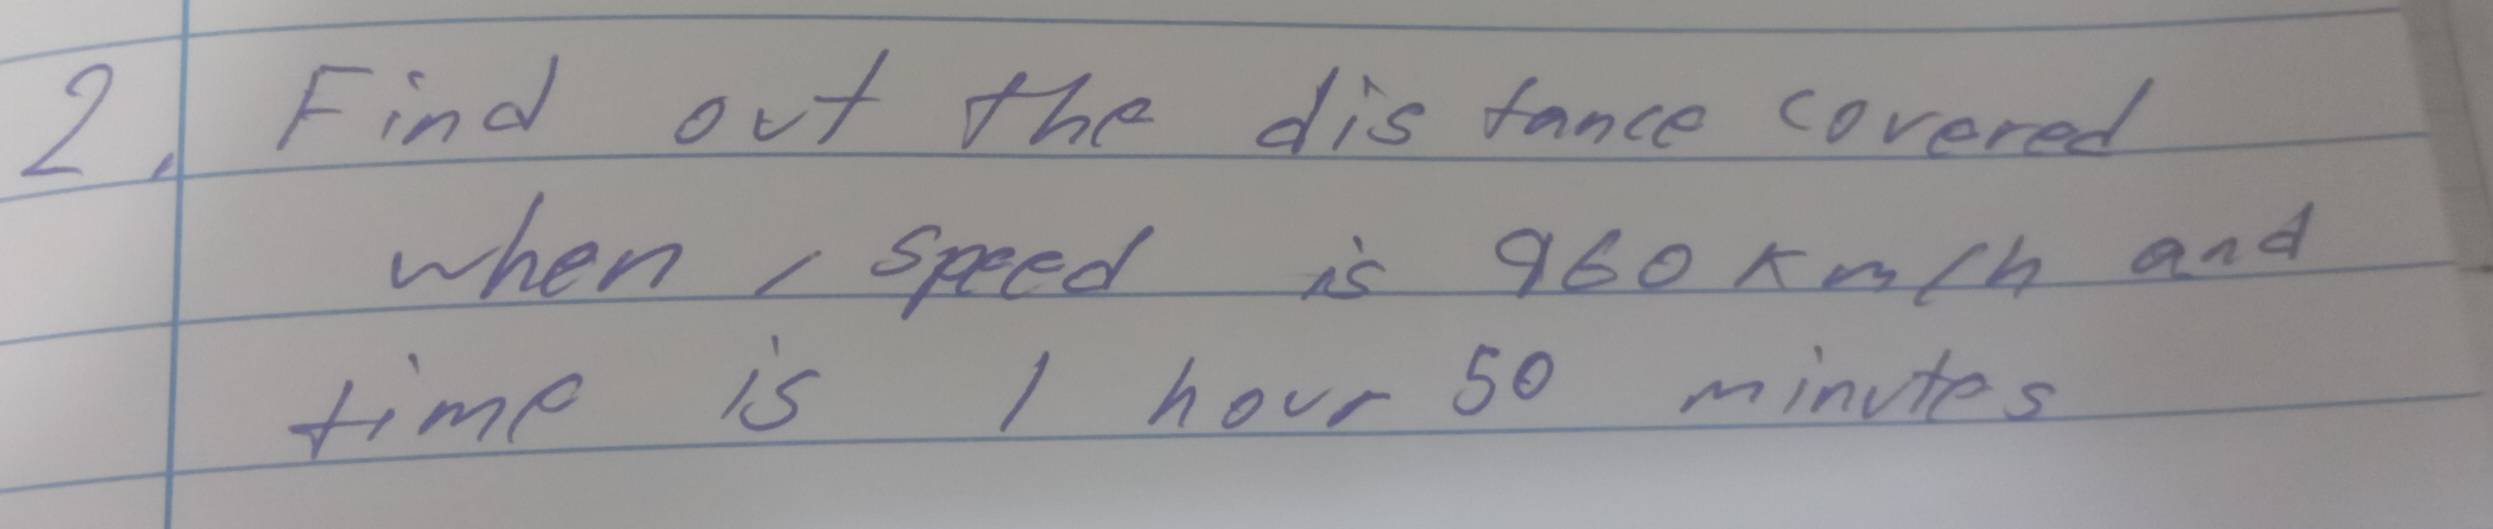 2. Find out the distance covered
when, speed is 960 Km/h and
time is 1 hour 50 minutes